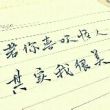 若你喜欢怪人
其实我很美